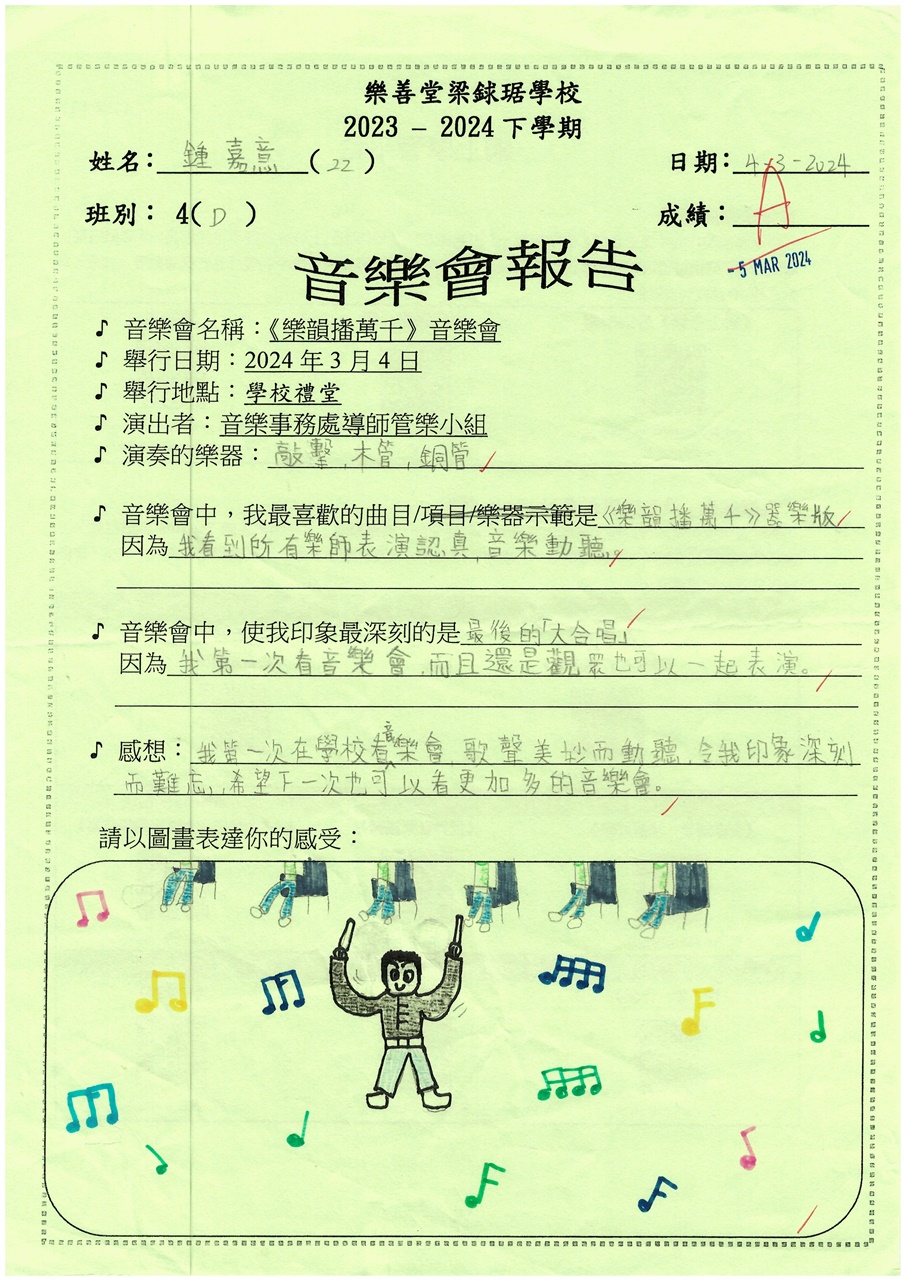 樂善堂梁銶琚學校
2023 – 2024 下學期
姓名：鍾嘉意（22） 日期：4-3-2024
班別：4（D） 成績：A
- 5 MAR 2024
音樂會報告
♪ 音樂會名稱：《樂韻播萬千》音樂會
♪ 舉行日期：2024 年 3 月 4 日
♪ 舉行地點：學校禮堂
♪ 演出者：音樂事務處導師管樂小組
♪ 演奏的樂器：敲擊,木管,銅管
♪ 音樂會中，我最喜歡的曲目/項目/樂器示範是《樂韻播萬千》器樂版
因為 我看到所有樂師表演認真,音樂動聽。
♪ 音樂會中，使我印象最深刻的是 最後的「大合唱」
因為 我第一次看音樂會,而且還是觀眾也可以一起表演。
♪ 感想：我第一次在學校看音樂會,歌聲美妙而動聽,令我印象深刻
而難忘,希望下一次也可以看更加多的音樂會。
請以圖畫表達你的感受：